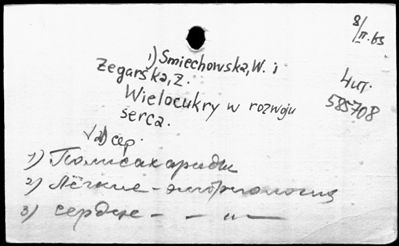 8/II.65
1) Smiechowska, W. i
Zegarska, Z.
4шт.
Wielocukry w rozwoju
585708
serca.
√а) сер.
1) Полисахариды
2) Лёгкие - эмбриология
3) сердце - - " -